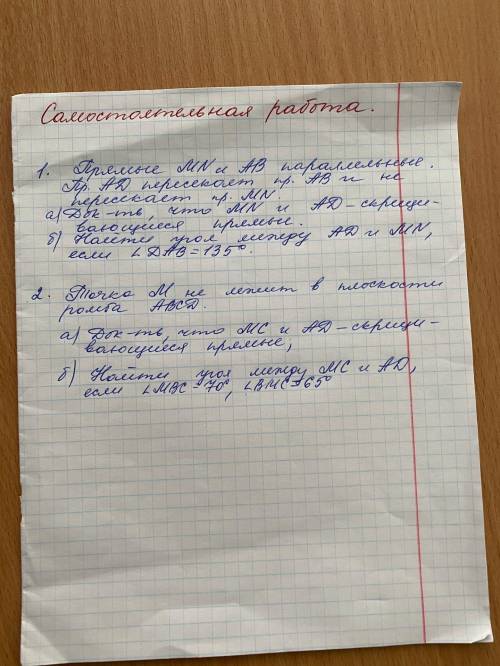 Самостоятельная работа.
1. Прямые MN и AB параллельные.
Пр. AD пересекает пр. AB и не
пересекает пр. MN.
а) Док-ть, что MN и AD-скрещи-
вающиеся прямые.
б) Найти угол между AD и MN,
если ∠DAB=135°.
2. Точка M не лежит в плоскости
ромба ABCD.
а) Док-ть, что MC и AD-скрещи-
вающиеся прямые,
б) Найти угол между MC и AD,
если ∠MBC=70°, ∠BMC=65°